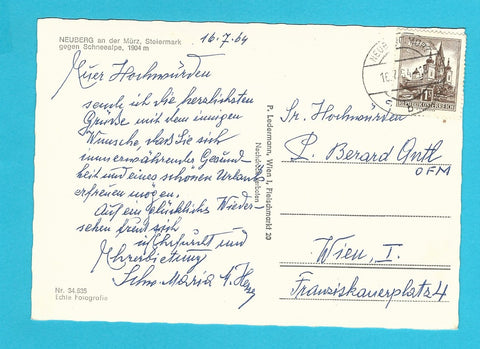 NEUBERG an der Mürz, Steiermark
gegen Schneealpe, 1904 m
16.7.64
Euer Hochwürden
sende ich die herzlichsten
Grüße mit dem innigen
Wunsche, daß Sie sich
immerwährender Gesund-
heit und eines schönen Urlaub
erfreuen mögen.
Auf ein glückliches Wieder-
sehen freut sich
in Ehrfurcht und
Ehrerbietung
Maria
Nr. 34.635
Echte Fotografie
P. Ledermann, Wien I, Fleischmarkt 20
Nachdruck verboten
NEUBERG
REPUBLIK ÖSTERREICH
Sr. Hochwürden
P. Berard
OFM
Wien, I.
Franziskanerplatz 4